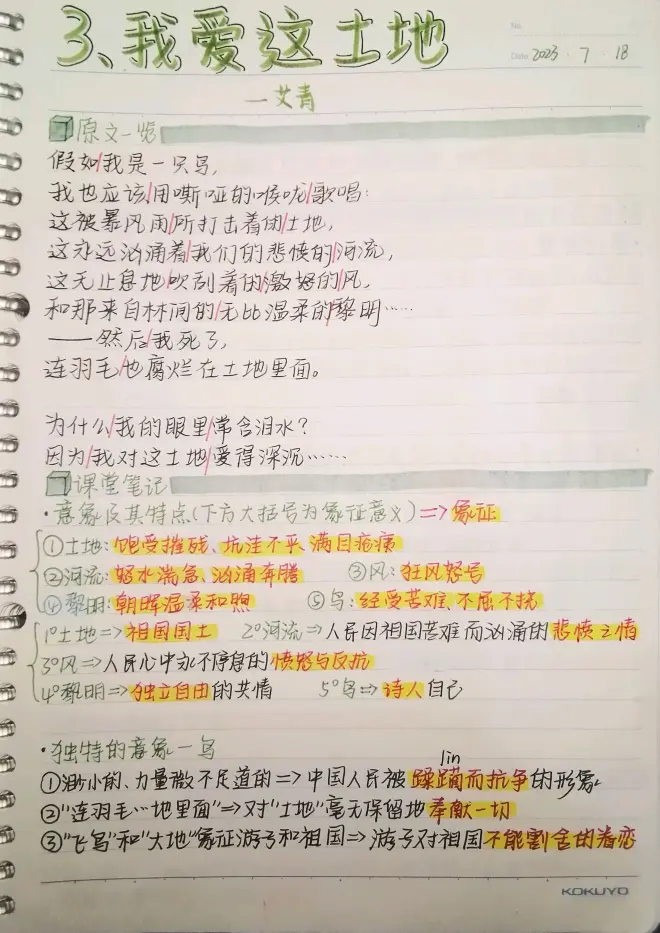 3、我爱这土地
No.
Date 2023 · 7 · 18
—艾青
原文一览
假如/我是一只鸟,
我也应该/用嘶哑的喉咙/歌唱:
这被暴风雨/所打击着的/土地,
这永远汹涌着/我们的悲愤的/河流,
这无止息地/吹刮着的/激怒的/风,
和那来自林间的/无比温柔的/黎明……
——然后/我死了,
连羽毛/也腐烂在土地里面。
为什么/我的眼里/常含泪水?
因为/我对这土地/爱得深沉……
课堂笔记
·意象及其特点(下方大括号为象征意义)=>象征
①土地:饱受摧残、坑洼不平、满目疮痍
②河流:怒水湍急、汹涌奔腾 ③风:狂风怒号
④黎明:朝晖温柔和煦 ⑤鸟:经受苦难、不屈不挠
1°土地=>祖国国土 2°河流=>人民因祖国苦难而汹涌的悲愤之情
3°风=>人民心中永不停息的愤怒与反抗
4°黎明=>独立自由的共情 5°鸟=>诗人自己
·独特的意象—鸟
lin
①渺小的、力量微不足道的=>中国人民被蹂躏而抗争的形象
②"连羽毛…地里面"=>对"土地"毫无保留地奉献一切
③"飞鸟"和"大地"象征游子和祖国=>游子对祖国不能割舍的眷恋
KOKUYO